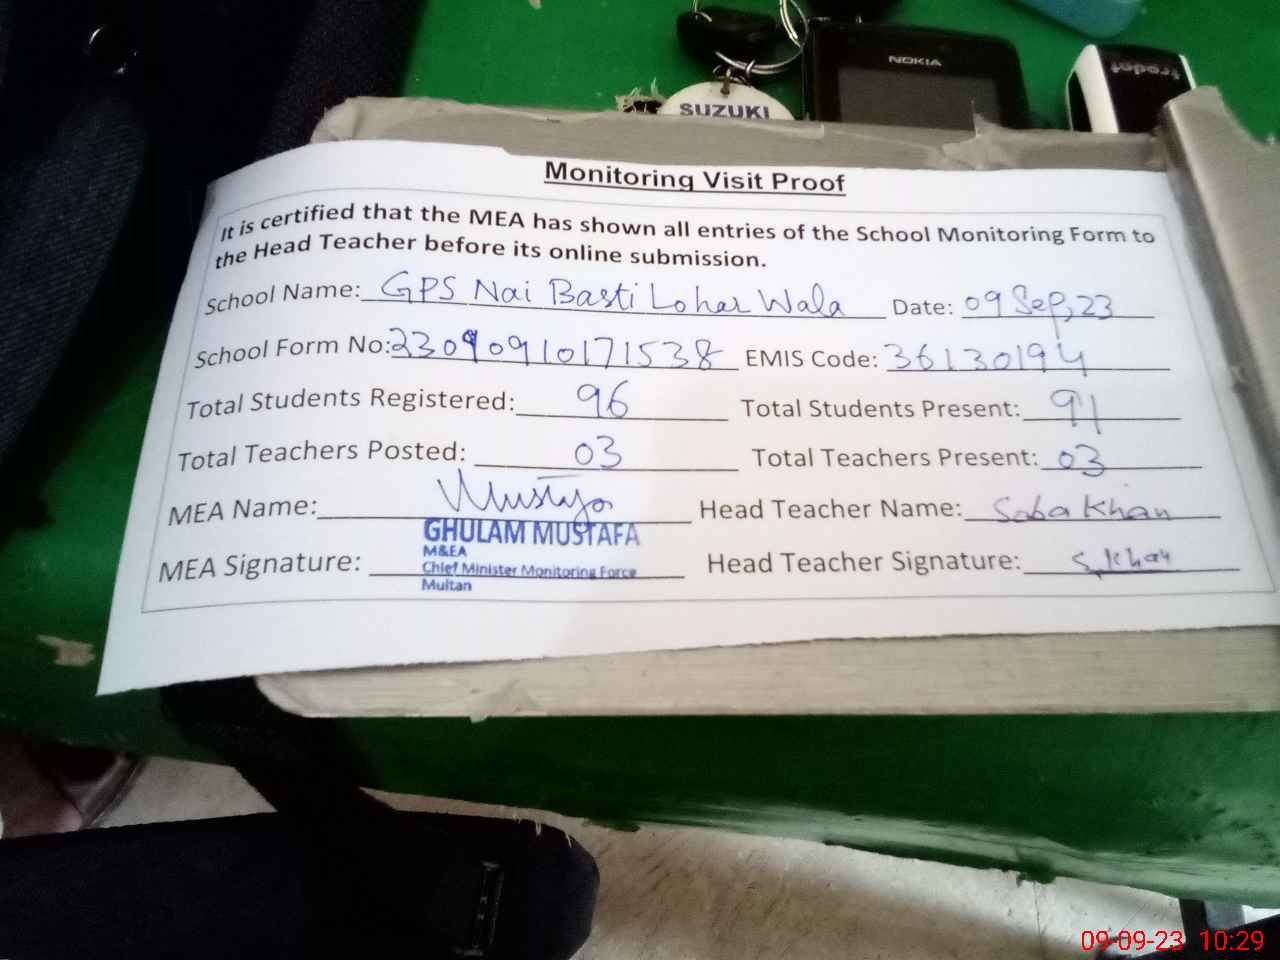 NOKIA
trodat
SUZUKI
Monitoring Visit Proof
It is certified that the MEA has shown all entries of the School Monitoring Form to
the Head Teacher before its online submission.
School Name: GPS Nai Basti Lohar Wala Date: 09 Sep, 23
School Form No: 23090910171538 EMIS Code: 36130194
Total Students Registered: 96 Total Students Present: 91
Total Teachers Posted: 03 Total Teachers Present: 03
MEA Name: Mustafa Head Teacher Name: Saba Khan
GHULAM MUSTAFA
M&EA
MEA Signature: Chief Minister Monitoring Force Head Teacher Signature: S.Khan
Multan
09-09-23 10:29